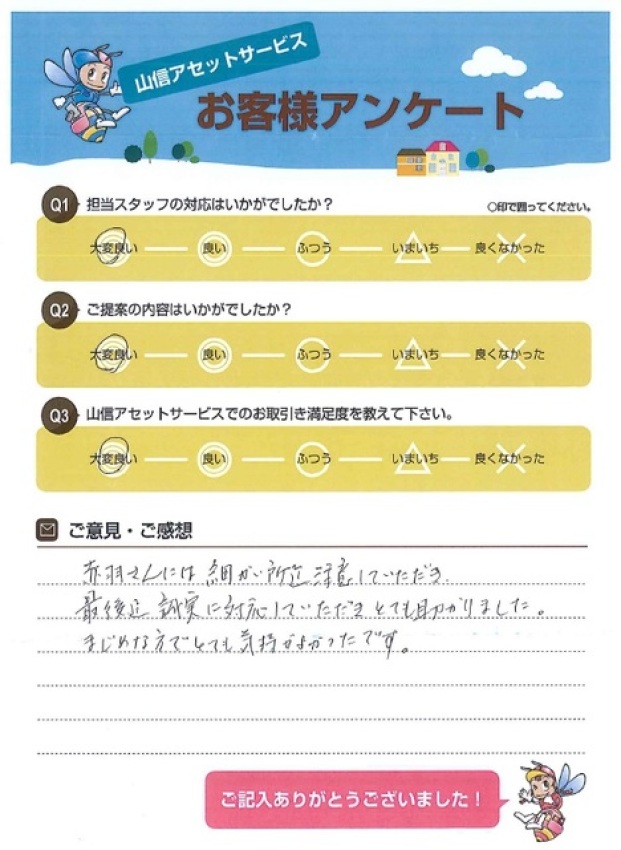 山信アセットサービス
お客様アンケート
Q1 担当スタッフの対応はいかがでしたか？ ○印で囲ってください。
大変良い 良い ふつう いまいち 良くなかった
Q2 ご提案の内容はいかがでしたか？
大変良い 良い ふつう いまいち 良くなかった
Q3 山信アセットサービスでのお取引き満足度を教えて下さい。
大変良い 良い ふつう いまいち 良くなかった
ご意見・ご感想
赤羽さんには細かい所迄注意していただき
最後迄誠実に対応していただきとても助かりました。
まじめな方でとても気持がよかったです。
ご記入ありがとうございました！